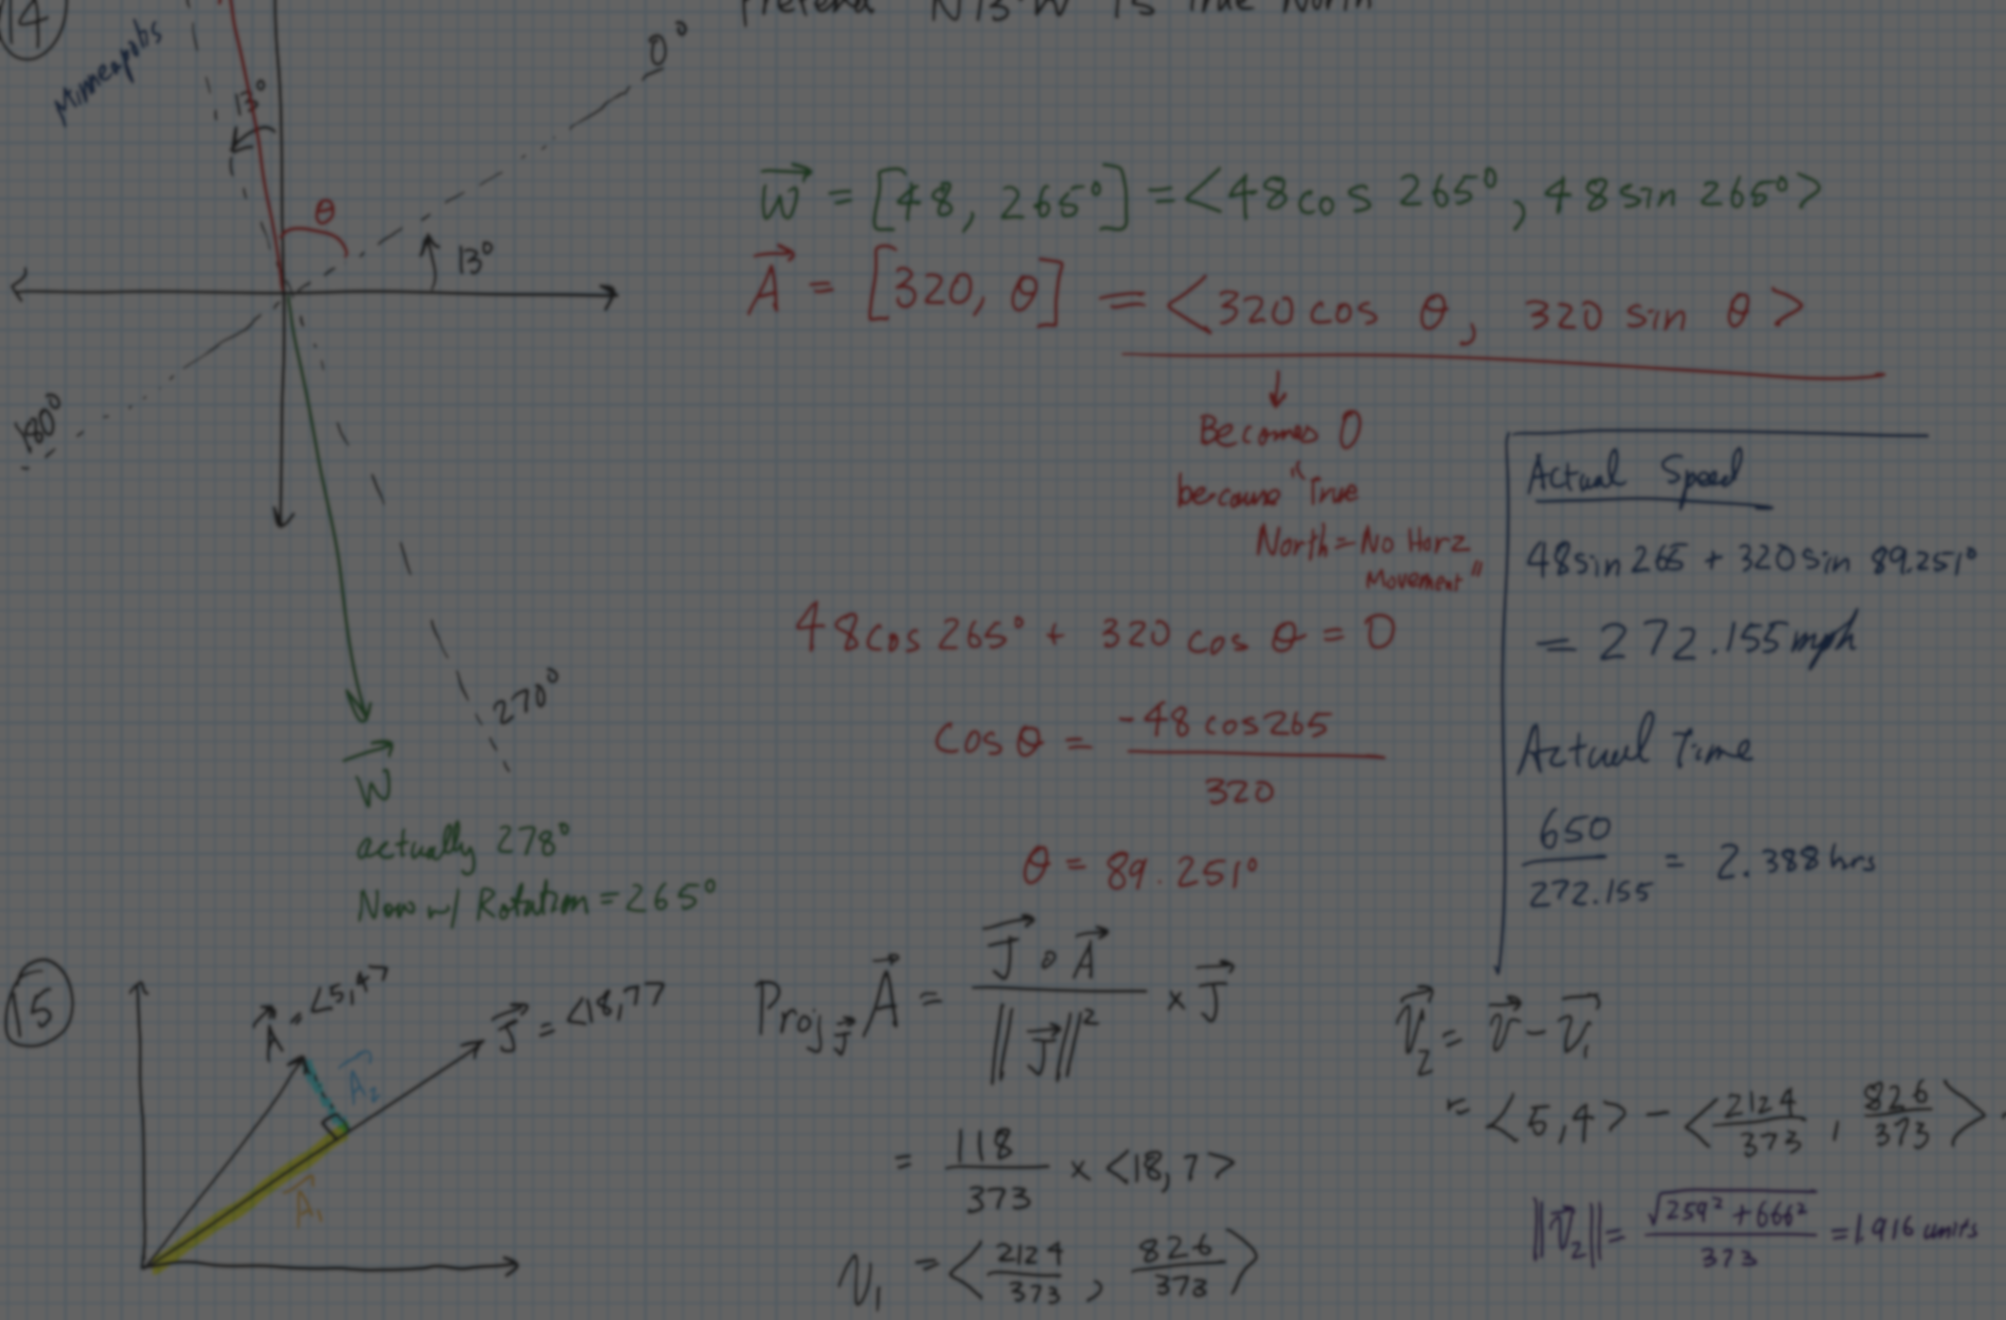 14
Pretend N13°W is True North
Minneapolis
13°
0°
θ
13°
180°
270°
W
actually 278°
Now w/ Rotation = 265°
W = [48, 265°] = <48 cos 265°, 48 sin 265°>
A = [320, θ] = <320 cos θ, 320 sin θ>
↓
Becomes 0
because "True
North = No Horz
Movement"
48 cos 265° + 320 cos θ = 0
cos θ = -48 cos 265 / 320
θ = 89.251°
Actual Speed
48 sin 265 + 320 sin 89.251°
= 272.155 mph
Actual Time
650 / 272.155 = 2.388 hrs
15
A = <5,4>
J = <18,7>
A₂
A₁
Proj_J A = J ∘ A / ||J||² × J
= 118/373 × <18, 7>
v₁ = <2124/373, 826/373>
v₂ = v - v₁
= <5,4> - <2124/373, 826/373>
||v₂|| = √259² + 666² / 373 = 1.916 units